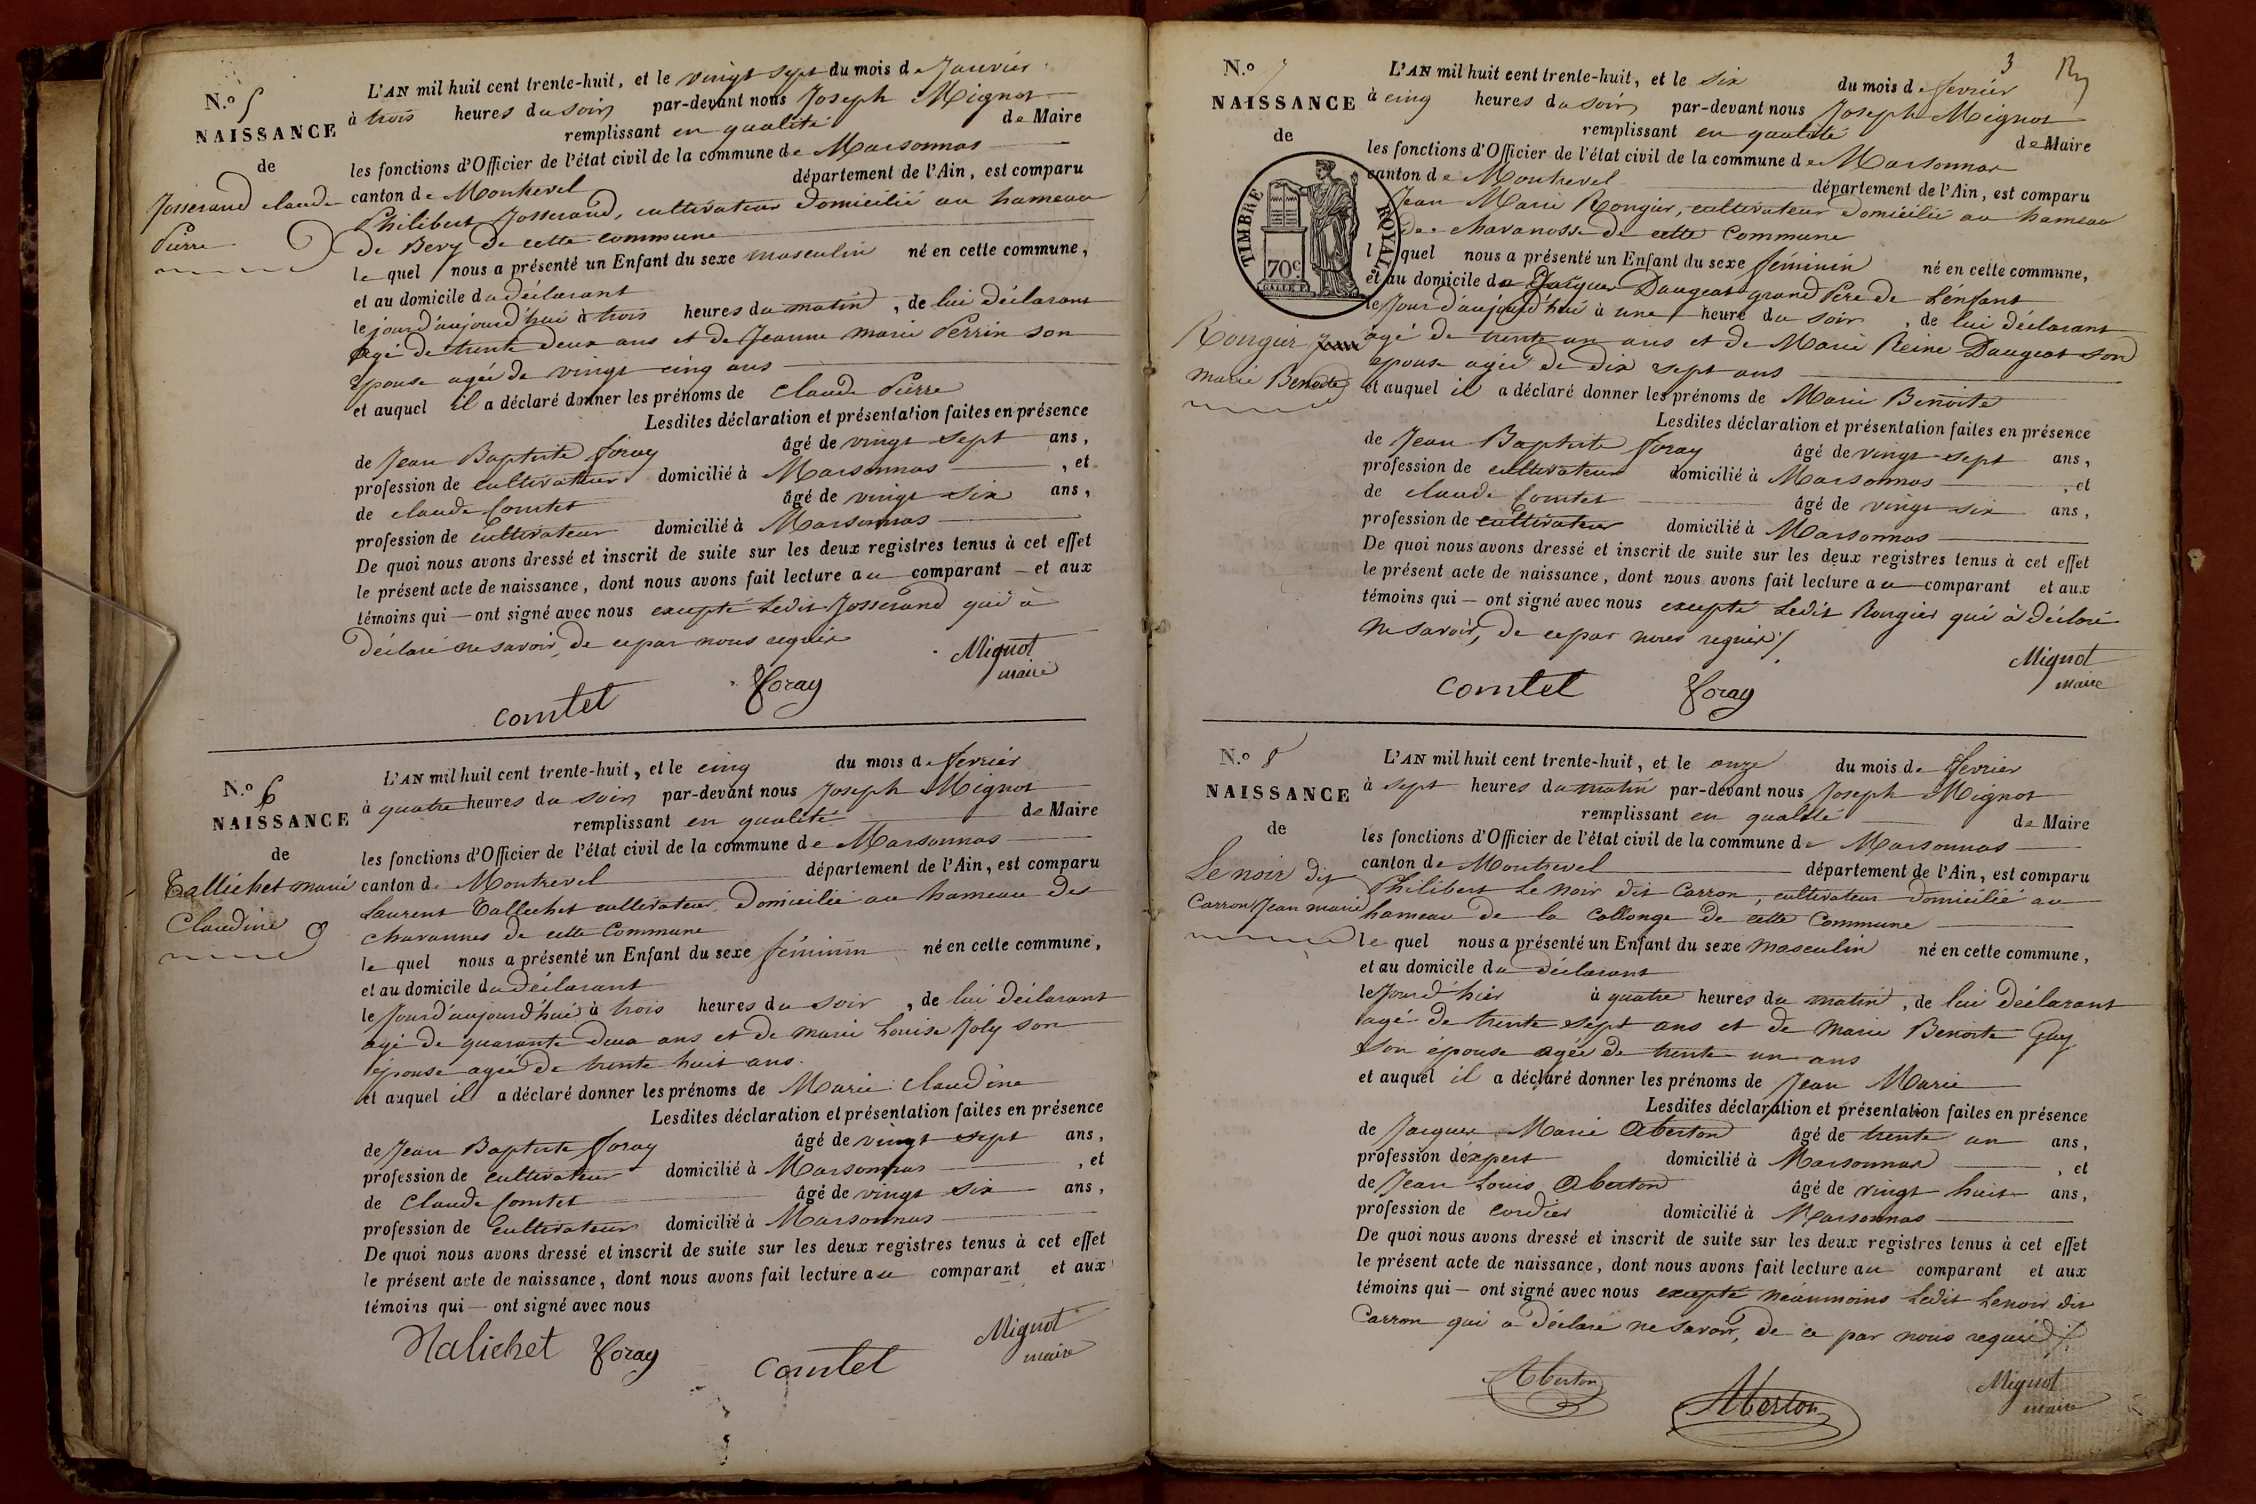 N.º 5
NAISSANCE
de
Josserand claude
Pierre
L'AN mil huit cent trente-huit, et le vingt sept du mois de Janvier
à trois heures du soir par-devant nous Joseph Mignot
remplissant en qualité de Maire
les fonctions d'Officier de l'état civil de la commune de Marsonnas
canton de Montrevel département de l'Ain, est comparu
Philibert Josserand, cultivateur domicilié au hameau
de Bevy de cette commune
le quel nous a présenté un Enfant du sexe masculin né en cette commune,
et au domicile du déclarant
le jour d'aujourd'hui à trois heures du matin, de lui déclarant
agé de trente deux ans et de Jeanne marie Perrin son
épouse agée de vingt cinq ans
et auquel il a déclaré donner les prénoms de Claude Pierre
Lesdites déclaration et présentation faites en présence
de Jean Baptiste foray âgé de vingt sept ans,
profession de cultivateur domicilié à Marsonnas, et
de claude Comtet âgé de vingt six ans,
profession de cultivateur domicilié à Marsonnas
De quoi nous avons dressé et inscrit de suite sur les deux registres tenus à cet effet
le présent acte de naissance, dont nous avons fait lecture au comparant et aux
témoins qui ont signé avec nous excepté Ledit Josserand qui à
déclaré ne savoir, de ce par nous requis
Mignot
maire
foray
comtet
N.º 6
NAISSANCE
de
Tallichet marie
Claudine
L'AN mil huit cent trente-huit, et le cinq du mois de fevrier
à quatre heures du soir par-devant nous Joseph Mignot
remplissant en qualité de Maire
les fonctions d'Officier de l'état civil de la commune de Marsonnas
canton de Montrevel département de l'Ain, est comparu
Laurent Tallichet cultivateur domicilié au hameau des
chavannes de cette Commune
le quel nous a présenté un Enfant du sexe féminin né en cette commune,
et au domicile du déclarant
le Jour d'aujourd'hui à trois heures du soir, de lui déclarant
agé de quarante deux ans et de marie Louise Joly son
épouse agée de trente huit ans.
et auquel il a déclaré donner les prénoms de Marie Claudine
Lesdites déclaration et présentation faites en présence
de Jean Baptiste foray âgé de vingt sept ans,
profession de cultivateur domicilié à Marsonnas, et
de Claude Comtet âgé de vingt six ans,
profession de Cultivateur domicilié à Marsonnas
De quoi nous avons dressé et inscrit de suite sur les deux registres tenus à cet effet
le présent acte de naissance, dont nous avons fait lecture au comparant et aux
témoins qui ont signé avec nous
Mignot
maire
Talichet foray
comtet
3
N.º 7
NAISSANCE
de
TIMBRE ROYAL
70c
Rougier
marie Benoite
L'AN mil huit cent trente-huit, et le six du mois de fevrier
à cinq heures du soir par-devant nous Joseph Mignot
remplissant en qualité de Maire
les fonctions d'Officier de l'état civil de la commune de Marsonnas
canton de Montrevel département de l'Ain, est comparu
Jean Marie Rougier, cultivateur domicilié au hameau
de chavanosse de cette Commune
lequel nous a présenté un Enfant du sexe féminin né en cette commune,
et au domicile de Jacques Daugeat grand Père de L'enfant
le Jour d'aujourd'hui à une heure du soir, de lui déclarant
agé de trente un ans et de Marie Reine Daugeat son
epouse agée de dix sept ans
et auquel il a déclaré donner les prénoms de Marie Benoite
Lesdites déclaration et présentation faites en présence
de Jean Baptiste foray âgé de vingt sept ans,
profession de cultivateur domicilié à Marsonnas, et
de claude Comtet âgé de vingt six ans,
profession de cultivateur domicilié à Marsonnas
De quoi nous avons dressé et inscrit de suite sur les deux registres tenus à cet effet
le présent acte de naissance, dont nous avons fait lecture au comparant et aux
témoins qui ont signé avec nous excepté Ledit Rougier qui à déclaré
ne savoir, de ce par nous requis
Mignot
maire
comtet foray
N.º 8
NAISSANCE
de
Lenoir dit
Carron Jean marie
L'AN mil huit cent trente-huit, et le onze du mois de fevrier
à sept heures du matin par-devant nous Joseph Mignot
remplissant en qualité de Maire
les fonctions d'Officier de l'état civil de la commune de Marsonnas
canton de Montrevel département de l'Ain, est comparu
Philibert Le Noir dit Carron, cultivateur domicilié au
hameau de la Collonge de cette Commune
le quel nous a présenté un Enfant du sexe masculin né en cette commune,
et au domicile du déclarant
le Jour d'hier à quatre heures du matin, de lui déclarant
agé de trente sept ans et de Marie Benoite Guy
son épouse agée de trente un ans
et auquel il a déclaré donner les prénoms de Jean Marie
Lesdites déclaration et présentation faites en présence
de Jacques Marie Aberton âgé de trente un ans,
profession d'expert domicilié à Marsonnas, et
de Jean Louis Aberton âgé de vingt huit ans,
profession de cordier domicilié à Marsonnas
De quoi nous avons dressé et inscrit de suite sur les deux registres tenus à cet effet
le présent acte de naissance, dont nous avons fait lecture au comparant et aux
témoins qui ont signé avec nous excepté néanmoins Ledit Lenoir dit
Carron qui a déclaré ne savoir, de ce par nous requis
Mignot
maire
Aberton
Aberton